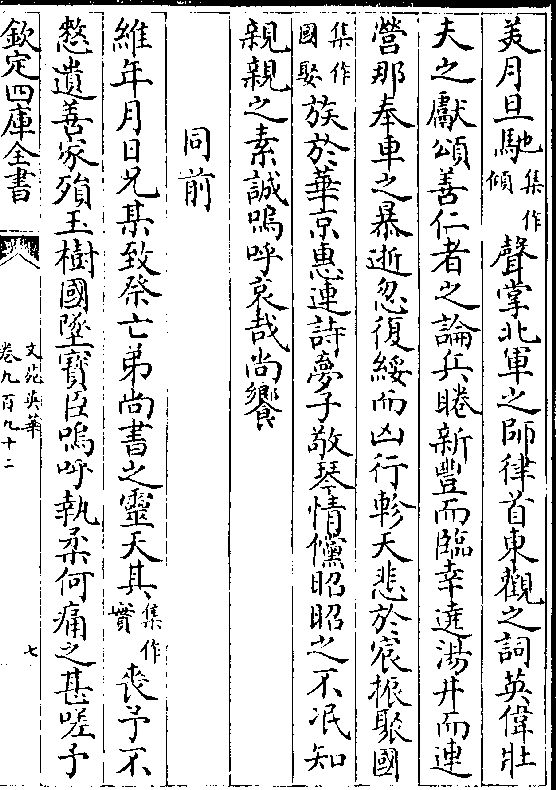 美月旦馳集作傾他聲掌北軍之師律首東觀之詞英偉壯
夫之獻頌善仁者之論兵睠新豐而臨幸遶湯井而連
營那奉車之暴逝忽復綏而凶行軫天悲於宸扆聚國
集作國娶族於華京惠連詩夢子敬琴情儻昭昭之不泯知
親親之素誠嗚呼哀哉尚饗
同前
維年月日兄某致祭亡弟尚書之靈天其集作實喪予不
憗遺善家殞玉樹國墜寶臣嗚呼執柔何痛之甚嗟予
欽定四庫全書
文苑英華
卷九百九十二
七